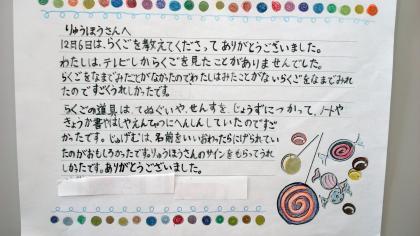 りゅうほうさんへ
12月6日は、らくごを教えてくださってありがとうございました。
わたしは、テレビしからくごを見たことがありませんでした。
らくごをなまでみたことがなかたのでわたしはみたことがないらくごをなまでみれ
たのですごくうれしかったです。
らくごの道具は、てぬぐいや、せんすを、じょうずにつかって、ノートや
きょうか書やはしやえんぴつにへんしんしていたのですご
かったです。じゅげむは、名前をいいおわったらにげられてい
たのがおもしろかったです。りゅうほうさんのサインをもらってうれ
しかったです。ありがとうございました。